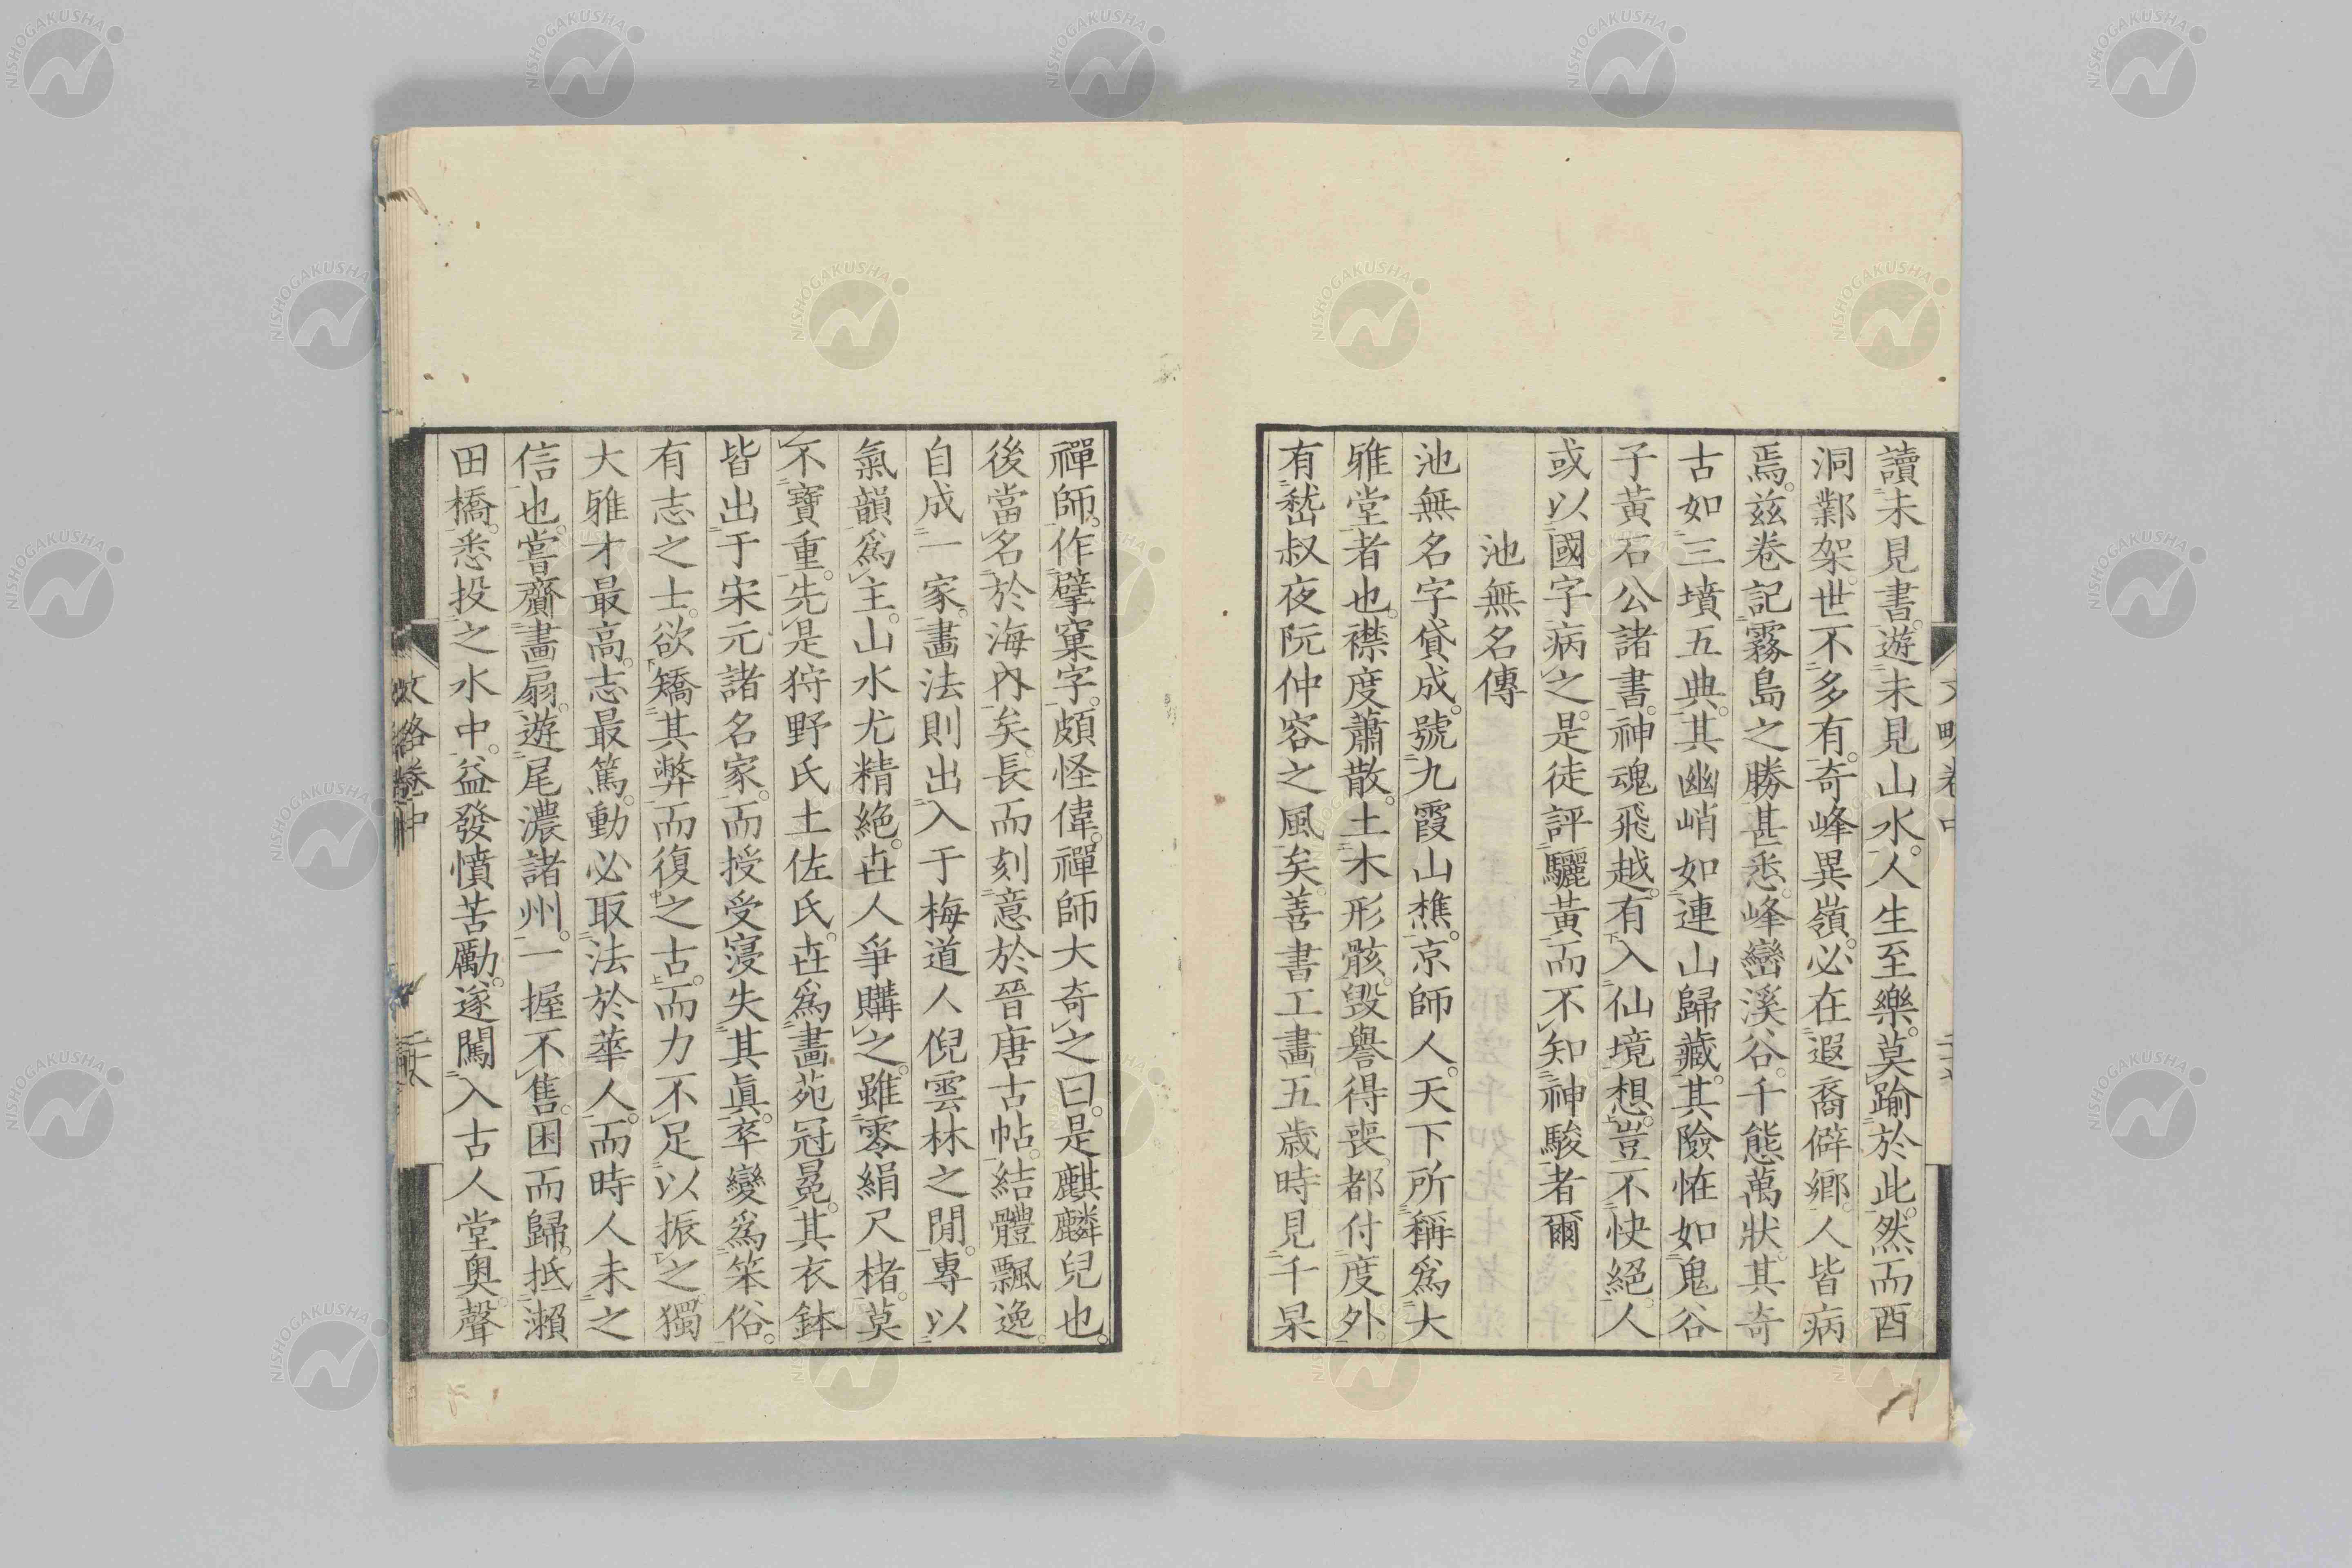 讀未見書。遊未見山水。人生至樂。莫踰於此。然而酉
洞鄴架。世不多有。奇峰異嶺。必在遐裔僻鄉。人皆病
焉。茲卷記霧島之勝甚悉。峰巒溪谷。千態萬狀。其奇
古如三墳五典。其幽峭如連山歸藏。其險恠如鬼谷
子黃石公諸書。神魂飛越。有入仙境想。豈不快絕。人
或以國字病之。是徒評驪黃而不知神駿者爾
池無名傳
池無名字貸成。號九霞山樵。京師人。天下所稱爲大
雅堂者也。襟度蕭散。土木形骸。毀譽得喪。都付度外。
有嵇叔夜阮仲容之風矣。善書工畫。五歲時見千杲
禪師。作擘窠字。頗怪偉。禪師大奇之曰。是麒麟兒也。
後當名於海內矣。長而刻意於晉唐古帖。結體飄逸。
自成一家。畫法則出入于梅道人倪雲林之閒。專以
氣韻爲主。山水尤精絕。世人爭購之。雖零絹尺楮。莫
不寶重。先是狩野氏土佐氏。世爲畫苑冠冕。其衣鉢
皆出于宋元諸名家。而授受寖失其眞。卒變爲笨俗。
有志之士。欲矯其弊而復之古。而力不足以振之。獨
大雅才最高。志最篤。動必取法於華人。而時人未之
信也。嘗齎畫扇。遊尾濃諸州。一握不售。困而歸。抵瀨
田橋。悉投之水中。益發憤苦勵。遂闖入古人堂奧。聲
文略卷中
NISHOGAKUSHA